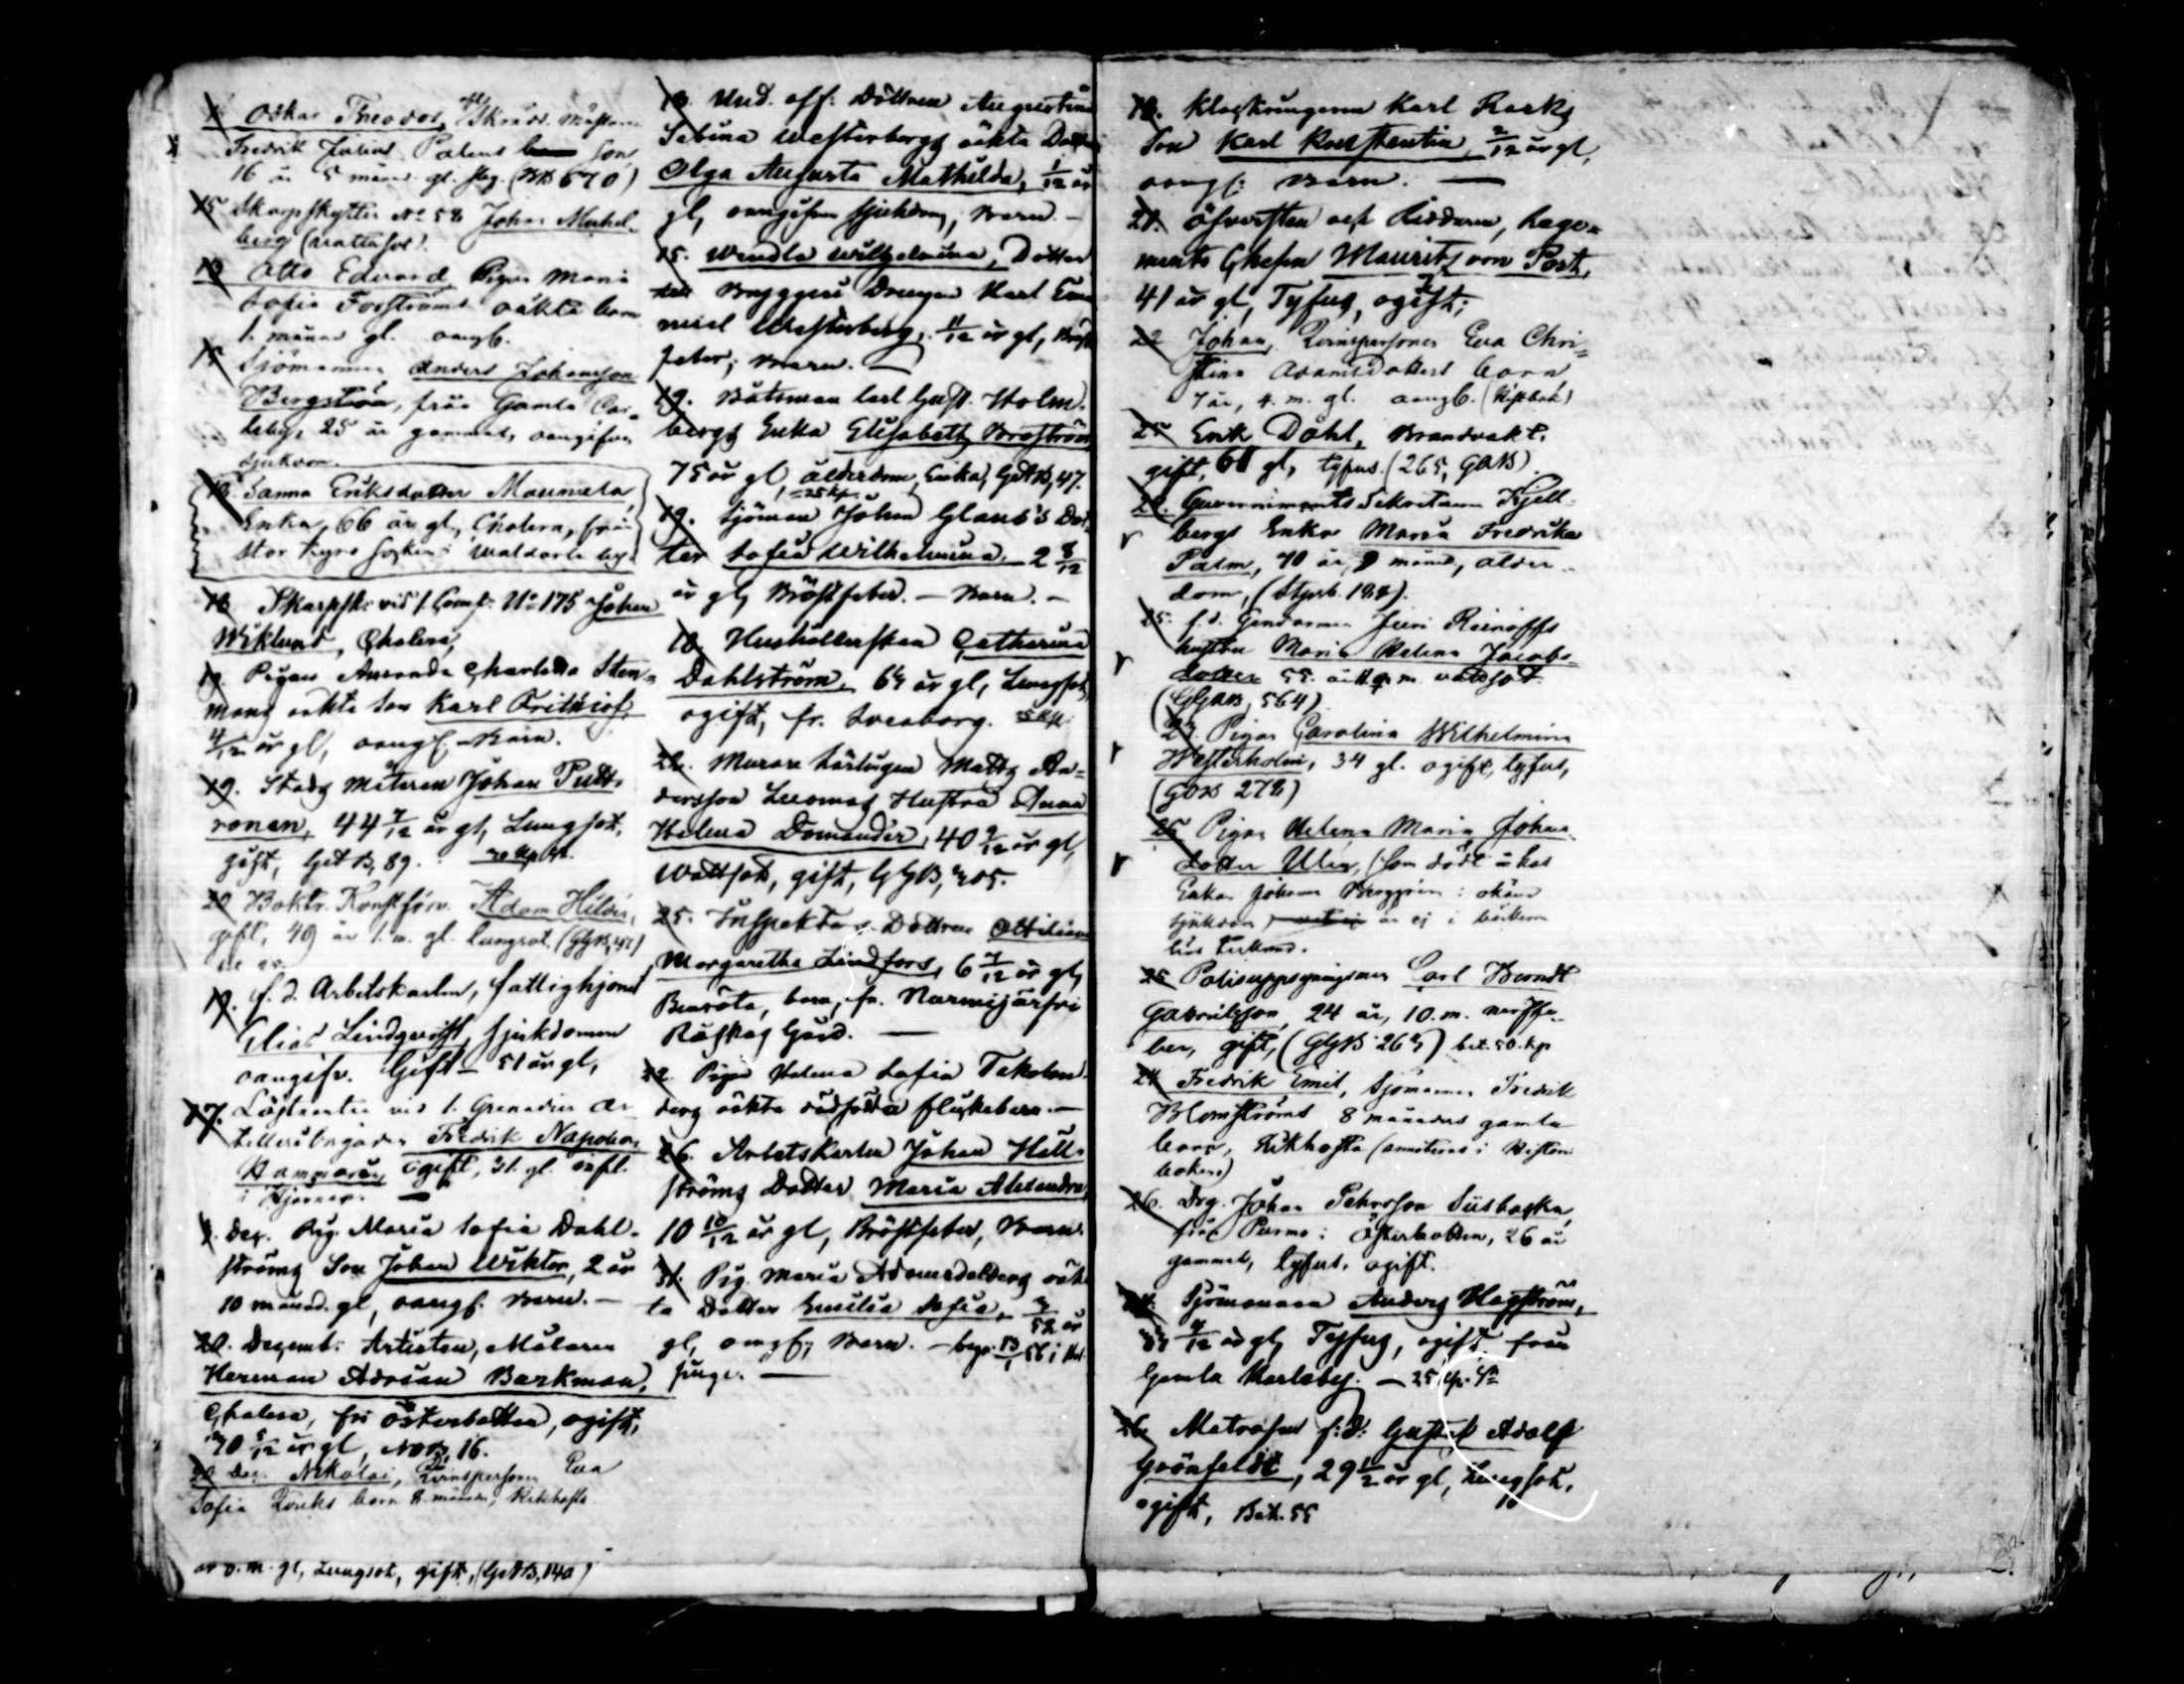 Oskar Theodor, Skrädd. mästaren
Fredrik Julius Palens son
16 år 5 mån. gl. (BB 670)
15 Skarpskytten No 58 Johan Michel-
berg (Wattusot).
13 Otto Edvard, Pigan Maria
Sofia Forströms oäkta barn
1. månad gl. oangb.
15 Sjömannen Anders Johansson
Bergström, från Gamla Car-
leby, 25 år gammal, oangifven
sjukdom.
18. Sanna Eriksdotter Maunula,
Enka, 66 år gl, Cholera, från
Stor Kyro Socken
18 Skarpsk. vid 1. Comp. No 175 Johan
Wiklund, Cholera,
19. Pigan Amanda Charlotta Sten-
mans oäkta Son Karl Frithiof,
4/12 år gl, oangf. - Barn.
19. Stads Mätaren Johan Putt-
ronen, 44 7/12 år gl, Lungsot,
gift, Get B, 89.
20 Boktr. Konstförv. Adam Hildén,
gift, 49 år 1. m. gl. lungsot. (GgB, 47)
19. f. d. Arbetskarlen, fattighjonet
Elias Lindqvist, Sjukdomen
oangifv. Gift - 51 år gl,
17. Löjtnanten vid 1. Grenadier Ar-
tilleribrigaden Fredrik Napoleon
ogift, 31. gl. infl.
i Hjernan. —
9. Dec. Pig. Maria Sofia Dahl-
ströms Son Johan Wiktor, 2 år
10 månad. gl, oangf. Barn. —
20. Decemb: Artisten, Målaren
Herman Adrian Barkman,
Cholera, fr. Österbotten, ogift,
5/12 år gl, 16.
20 Dec. Nikolai, Qvinspersonen Eva
Sofia barn 2. månader, Kikhosta
år 0. m. gl, Lungsot, gift, (Get B, 140)
18. Und. off. Dottren Augustina
Sabina Westerbergs oäkta Dotter
Olga Augusta Mathilda, 1/12 år
gl, oangifven sjukdom, Barn. —
15. Wendla Wilhelmina, Dotter
till Bryggeri Drengen Karl Ema-
nuel Westerberg, 11/12 år gl, Bröst
feber, Barn. —
19. Båtsman Carl Gust. Holm-
bergs Enka Elisabeth Broström
75 år gl, ålderdom, Enka, Get B, 47.
= 25 kp.
19. Sjöman Johan Glans's Dot-
ter Sofia Wilhelmina, 2 8/12
år gl, Bröstfeber. — Barn. —
18. Hushållerskan Catharina
Dahlström, 64 år gl, Lungsot,
ogift, fr. Sveaborg. 25 kp.
22. Murare Lärlingen Matts An-
dersson Hustru Anna
Helena Domander, 40 9/12 år gl,
Wattsot, gift, GgB, 405.
25. Inspektors Dottren Ottiliana
Margaretha Lindfors, 6 7/12 år gl,
Benröta, barn, fr. Nurmijärfvi
Gård. —
22 Pigan Helena Sofia Takolan-
ders oäkta dödfödda flickebarn. —
26. Arbetskarlen Johan Hell-
ströms Dotter Maria Alexandra,
10 10/12 år gl, Bröstfeber, Barn.
31. Pig. Maria oäk-
ta Dotter Emilia Sofia, 3/52 år
gl, oangf., Barn. — begr. 13/1 56 i Hel-
singe. —
18. Klockringaren Karl Rocks
Son Karl Konstantin, 2/12 år gl,
oangf. Barn. —
21. Öfversten och Riddaren, Rege-
ments Chefen Maurits von Post,
41 år gl, Tyfus, ogift;
22 Johan, Qvinspersonen Eva Chri-
stina Adamsdotters barn
7 år, 4. m. gl. oangb. (Kistbok)
25 Erik Dahl, Brandvakt,
gift, 61 gl, tyfus. (265, GAB)
24. Guvernements Sekreteraren Kjell-
bergs Enka Maria Fredrika
Palm, 70 år, 9 månad, ålder-
dom,
25. f. d. Gendarmen
hustru Maria Helena Jacobs-
dotter 55. år 11 m. vattusot.
(GgAB, 564)
27. Pigan Carolina Wilhelmina
Westerholm, 34 gl. ogift, tyfus,
(GAB 272)
25 Pigan Helena Maria Johans-
dotter Ulin, (Som dödt hos
Enkan Johanna Berggren: okänd
sjukdom) är ej i böckerna
25 Polisuppsyningsman Carl Berndt
Gabrielsson, 24 år, 10. m. nerffe-
ber, gift, (GgB 267) bet. 50. kp
24 Fredrik Emil, Sjömannen Fredrik
Blomströms 8 månaders gamla
barn, Kikhosta
26. Drg. Johan Pehrsson Siisbacka,
från Purmo i Österbotten, 26 år
gammal, tyfus, ogift.
Sjömannen Anders Hagström,
7/12 år gl, Tyfus, ogift, från
Gamla Karleby. — 25 kp. Sr
26. Matrosen f. d. Gustaf Adolf
Grönfeldt, 29 1/2 år gl, Lungsot,
ogift, Båtz. 55